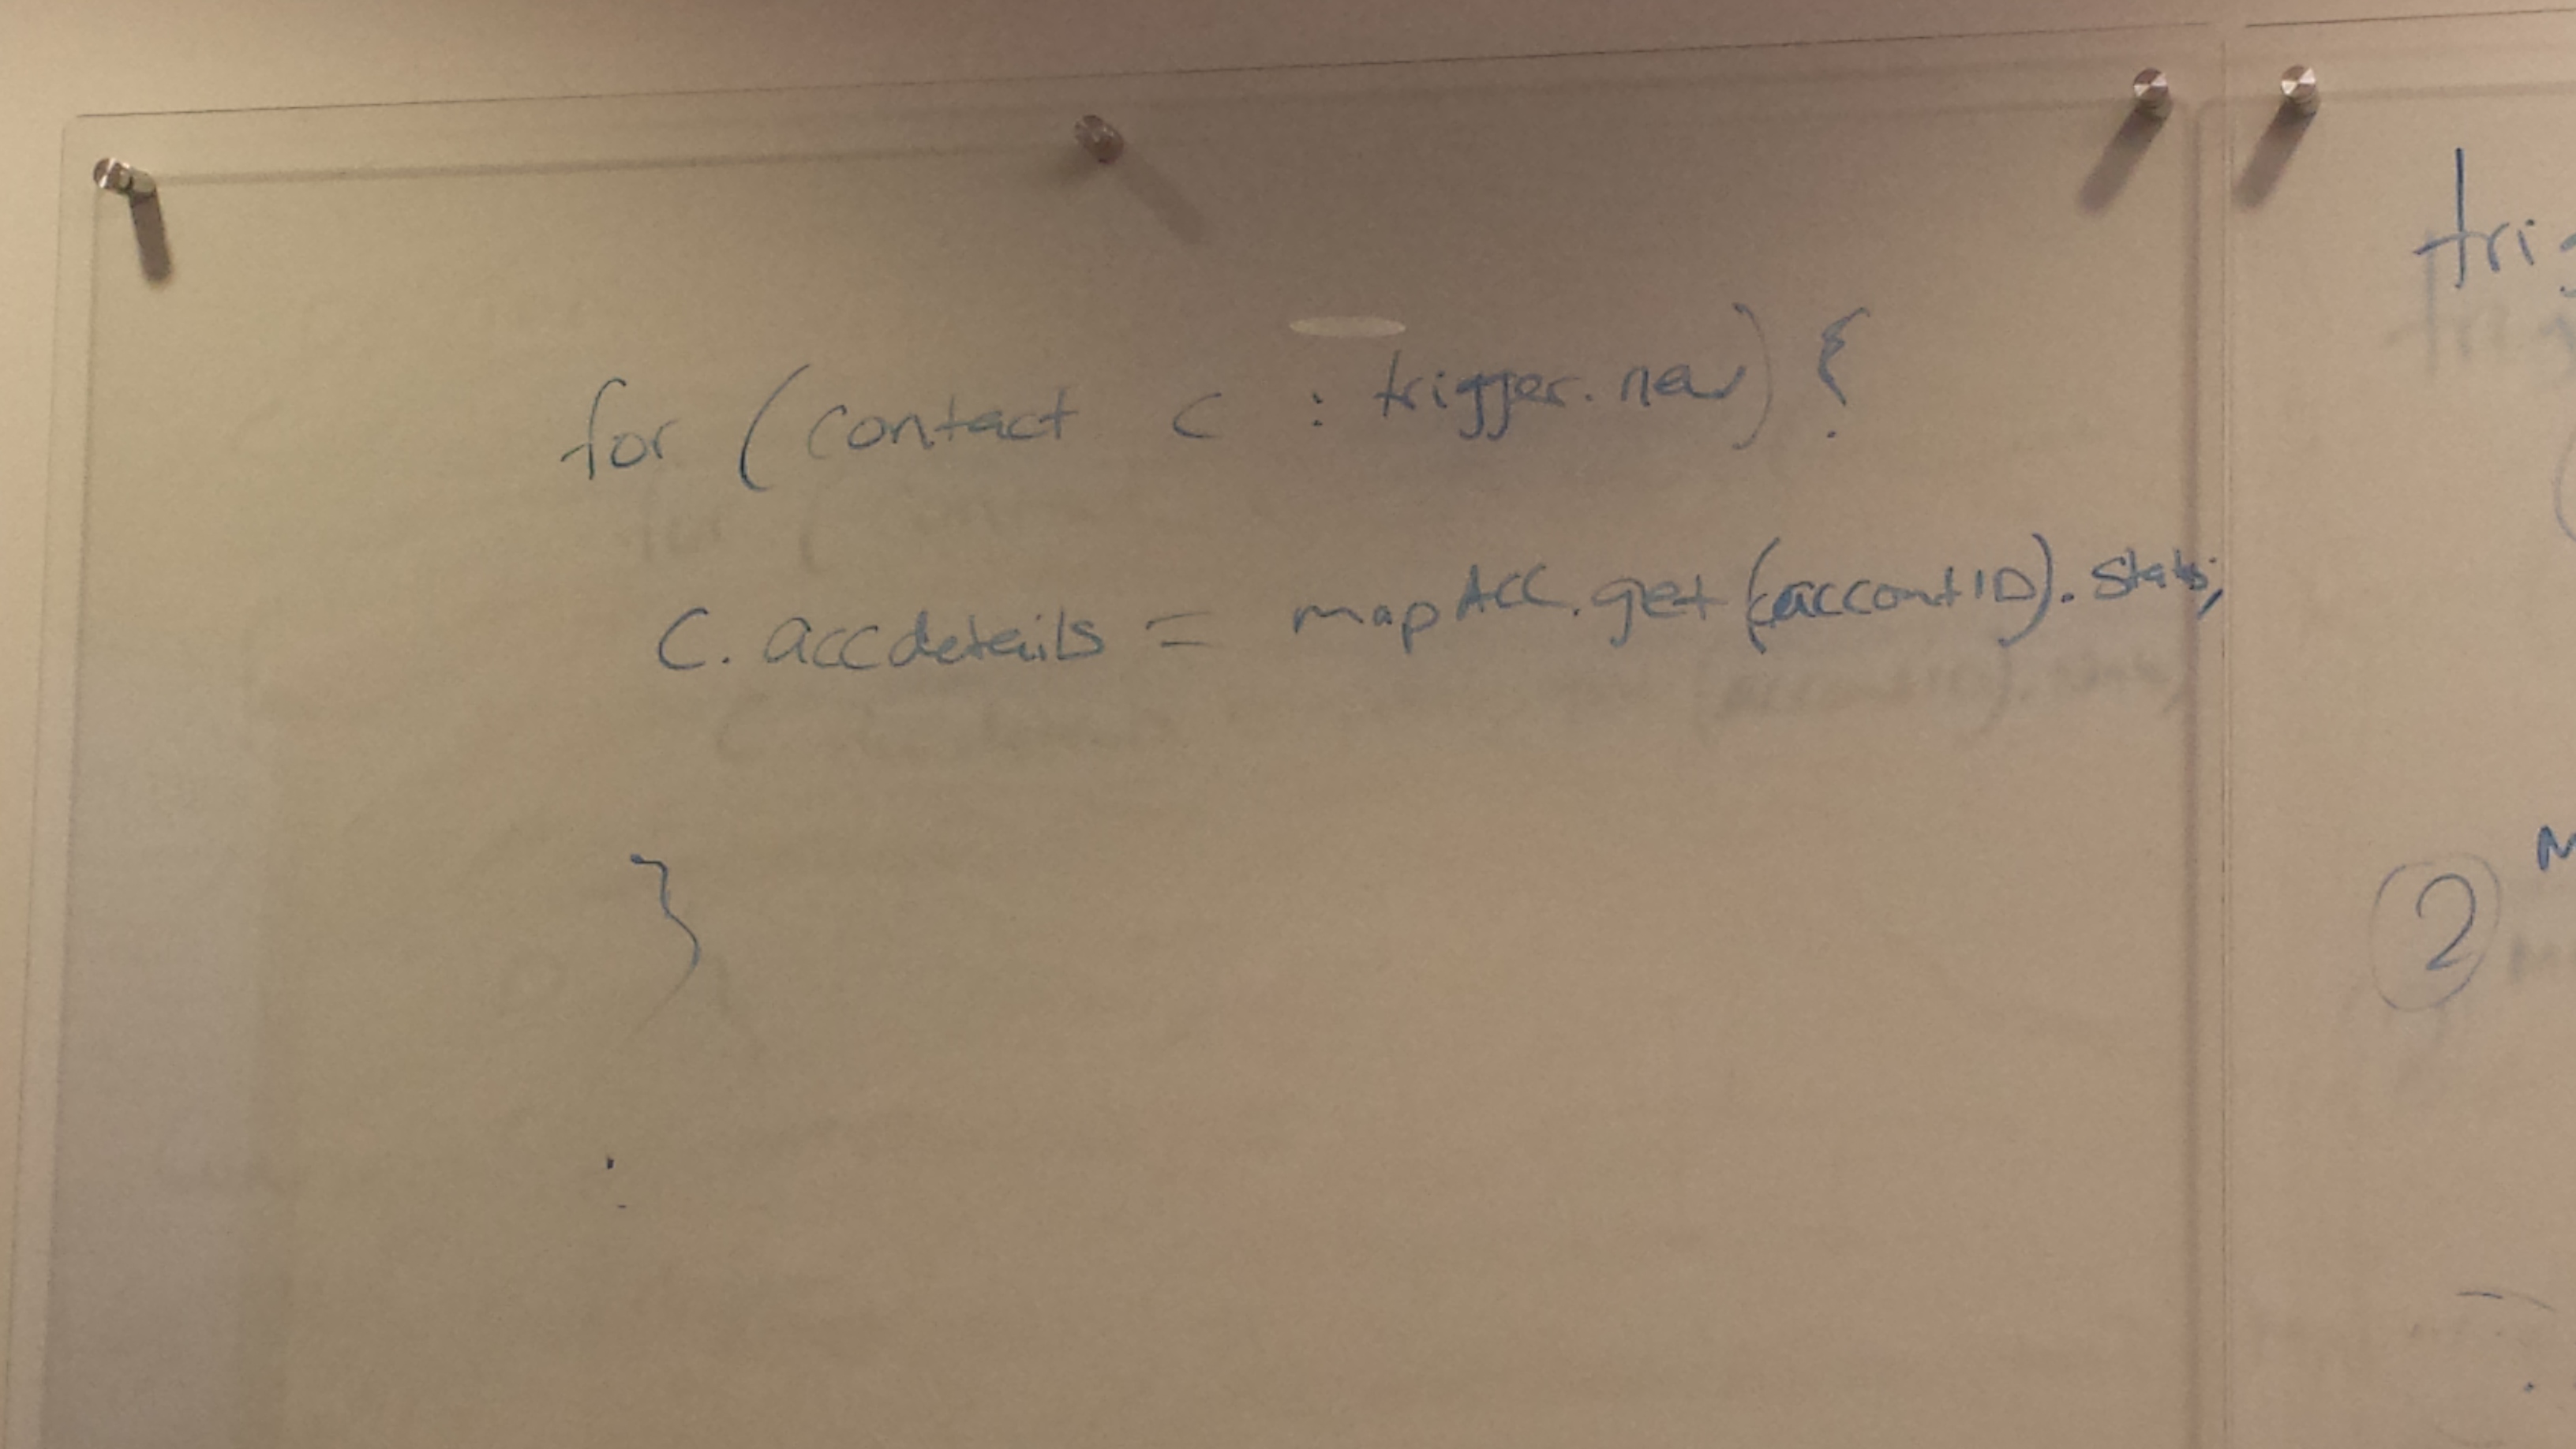 for (contact c : trigger.new) {
c.accdetails = mapAcc.get(c.accontID).status;
}
trig
2